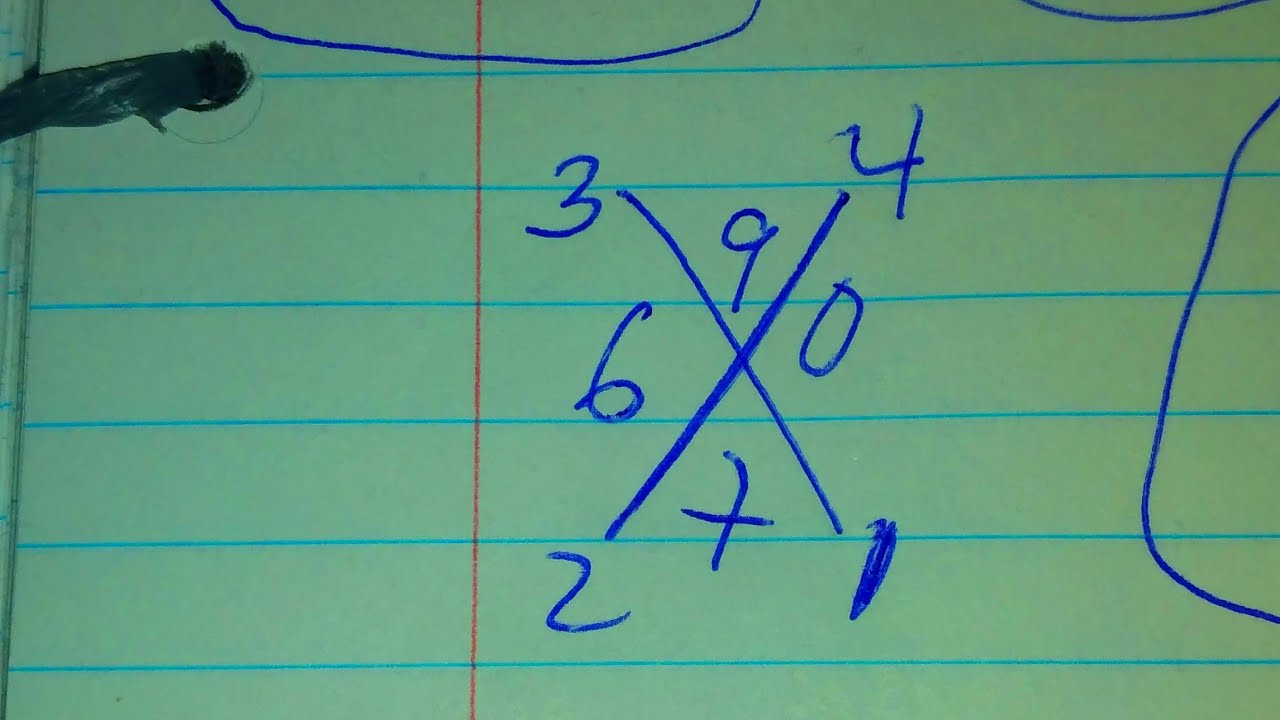 3 4
9
6 0
+
2 1